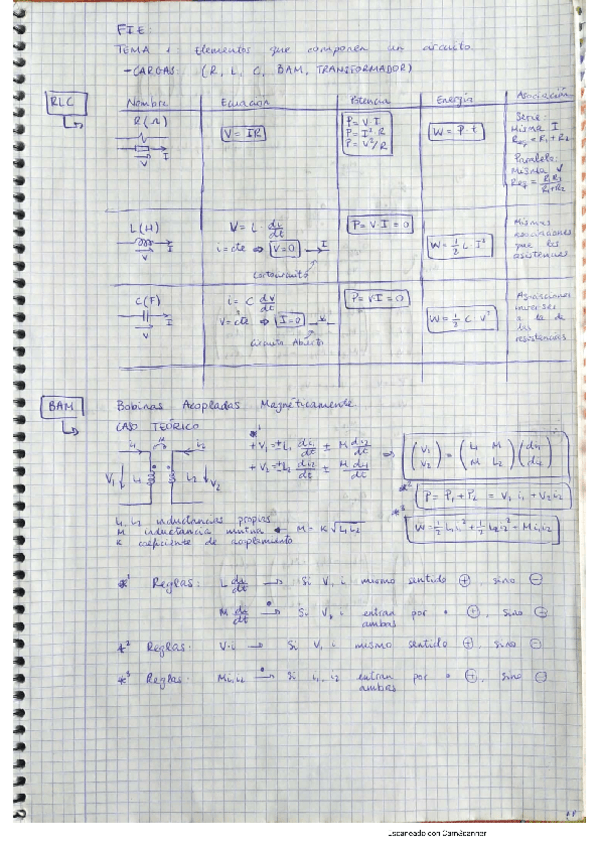 FIE
TEMA 1: Elementos que componen un circuito.
- CARGAS: (R, L, C, BAM, TRANSFORMADOR)
RLC
Nombre Ecuación Potencia Energía Asociación
R (Ω)
V I
V = IR
P = V·I
P = I²·R
P = V²/R
W = P·t
Serie:
Misma I
Req = R1 + R2
Paralelo:
Misma V
Req = R1R2/R1+R2
L (H)
V I
V = L · di/dt
i = cte ⇒ V=0 I
Cortocircuito
P = V·I = 0
W = 1/2 L·I²
Mismas
asociaciones
que las
resistencias
C (F)
V I
i = C dV/dt
V = cte ⇒ I=0
Circuito Abierto
P = V·I = 0
W = 1/2 C·V²
Asociaciones
inversas
a la de
las
resistencias
BAM
Bobinas Acopladas Magnéticamente
CASO TEÓRICO
i1 M i2
V1 L1 L2 V2
*1
+ V1 = ± L1 di1/dt ± M di2/dt
+ V2 = ± L2 di2/dt ± M di1/dt
⇒ (V1 V2) = (L1 M M L2) (di1 di2)
*2 P = P1 + P2 = V1 i1 + V2 i2
*3 W = 1/2 L1 i1² + 1/2 L2 i2² + M i1 i2
L1, L2 inductancias propias
M inductancia mutua ← M = K √L1 L2
K coeficiente de acoplamiento
*1 Reglas: L di/dt → Si V, i mismo sentido ⊕, sino ⊖
M di/dt → Si V, i entran por • ⊕, sino ⊖
ambas
*2 Reglas: V·i → Si V, i mismo sentido ⊕, sino ⊖
*3 Reglas: M i1 i2 → Si i1, i2 entran por • ⊕, sino ⊖
ambas
Escaneado con CamScanner